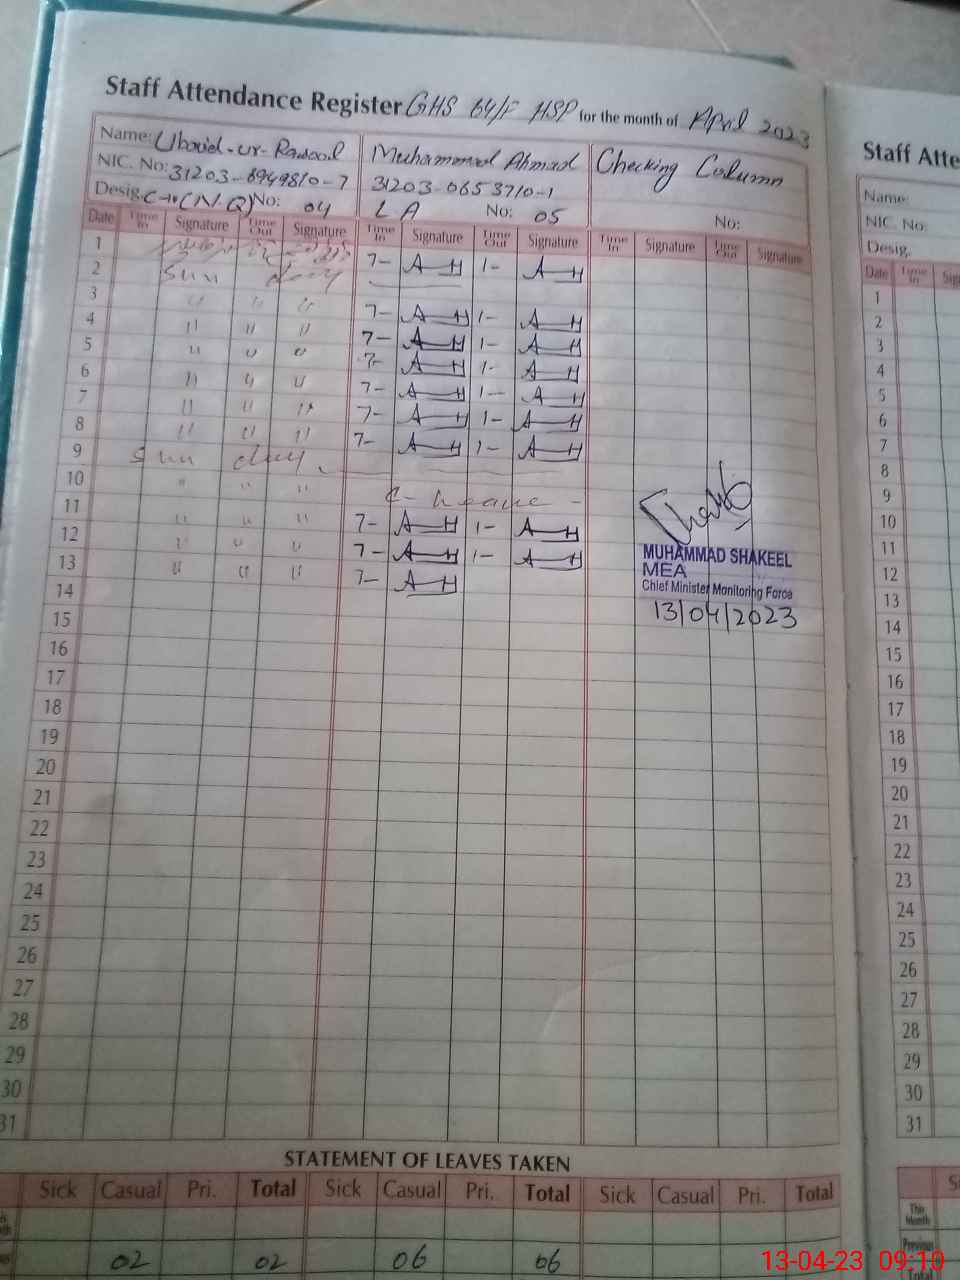 Staff Attendance Register GHS 64/F HSP for the month of April 2023
Name: Ubaid-ur-Rasool Muhammad Ahmad Checking Column
NIC. No: 31203-6949810-7 31203-0653710-1
Desig. No: 04 LA No: 05 No:
Date Time In Signature Time Out Signature Time In Signature Time Out Signature Time In Signature Time Out Signature
1 7- AH 1- AH
2 Sun day
3 " " " 7- AH 1- AH
4 " " " 7- AH 1- AH
5 " " " 7- AH 1- AH
6 " " " 7- AH 1- AH
7 " " " 7- AH 1- AH
8 " " " 7- AH 1- AH
9 Sun day
10 " " " C- Leave -
11 " " " 7- AH 1- AH
12 " " " 7- AH 1- AH
13 " " " 7- AH
14
15
16
17
18
19
20
21
22
23
24
25
26
27
28
29
30
31
MUHAMMAD SHAKEEL
MEA
Chief Minister Monitoring Force
13/04/2023
STATEMENT OF LEAVES TAKEN
Sick Casual Pri. Total Sick Casual Pri. Total Sick Casual Pri. Total
02 02 06 06
Staff Atte
Name:
NIC. No:
Desig.
Date Time In
1
2
3
4
5
6
7
8
9
10
11
12
13
14
15
16
17
18
19
20
21
22
23
24
25
26
27
28
29
30
31
This Month
Previous
Total
13-04-23 09:10